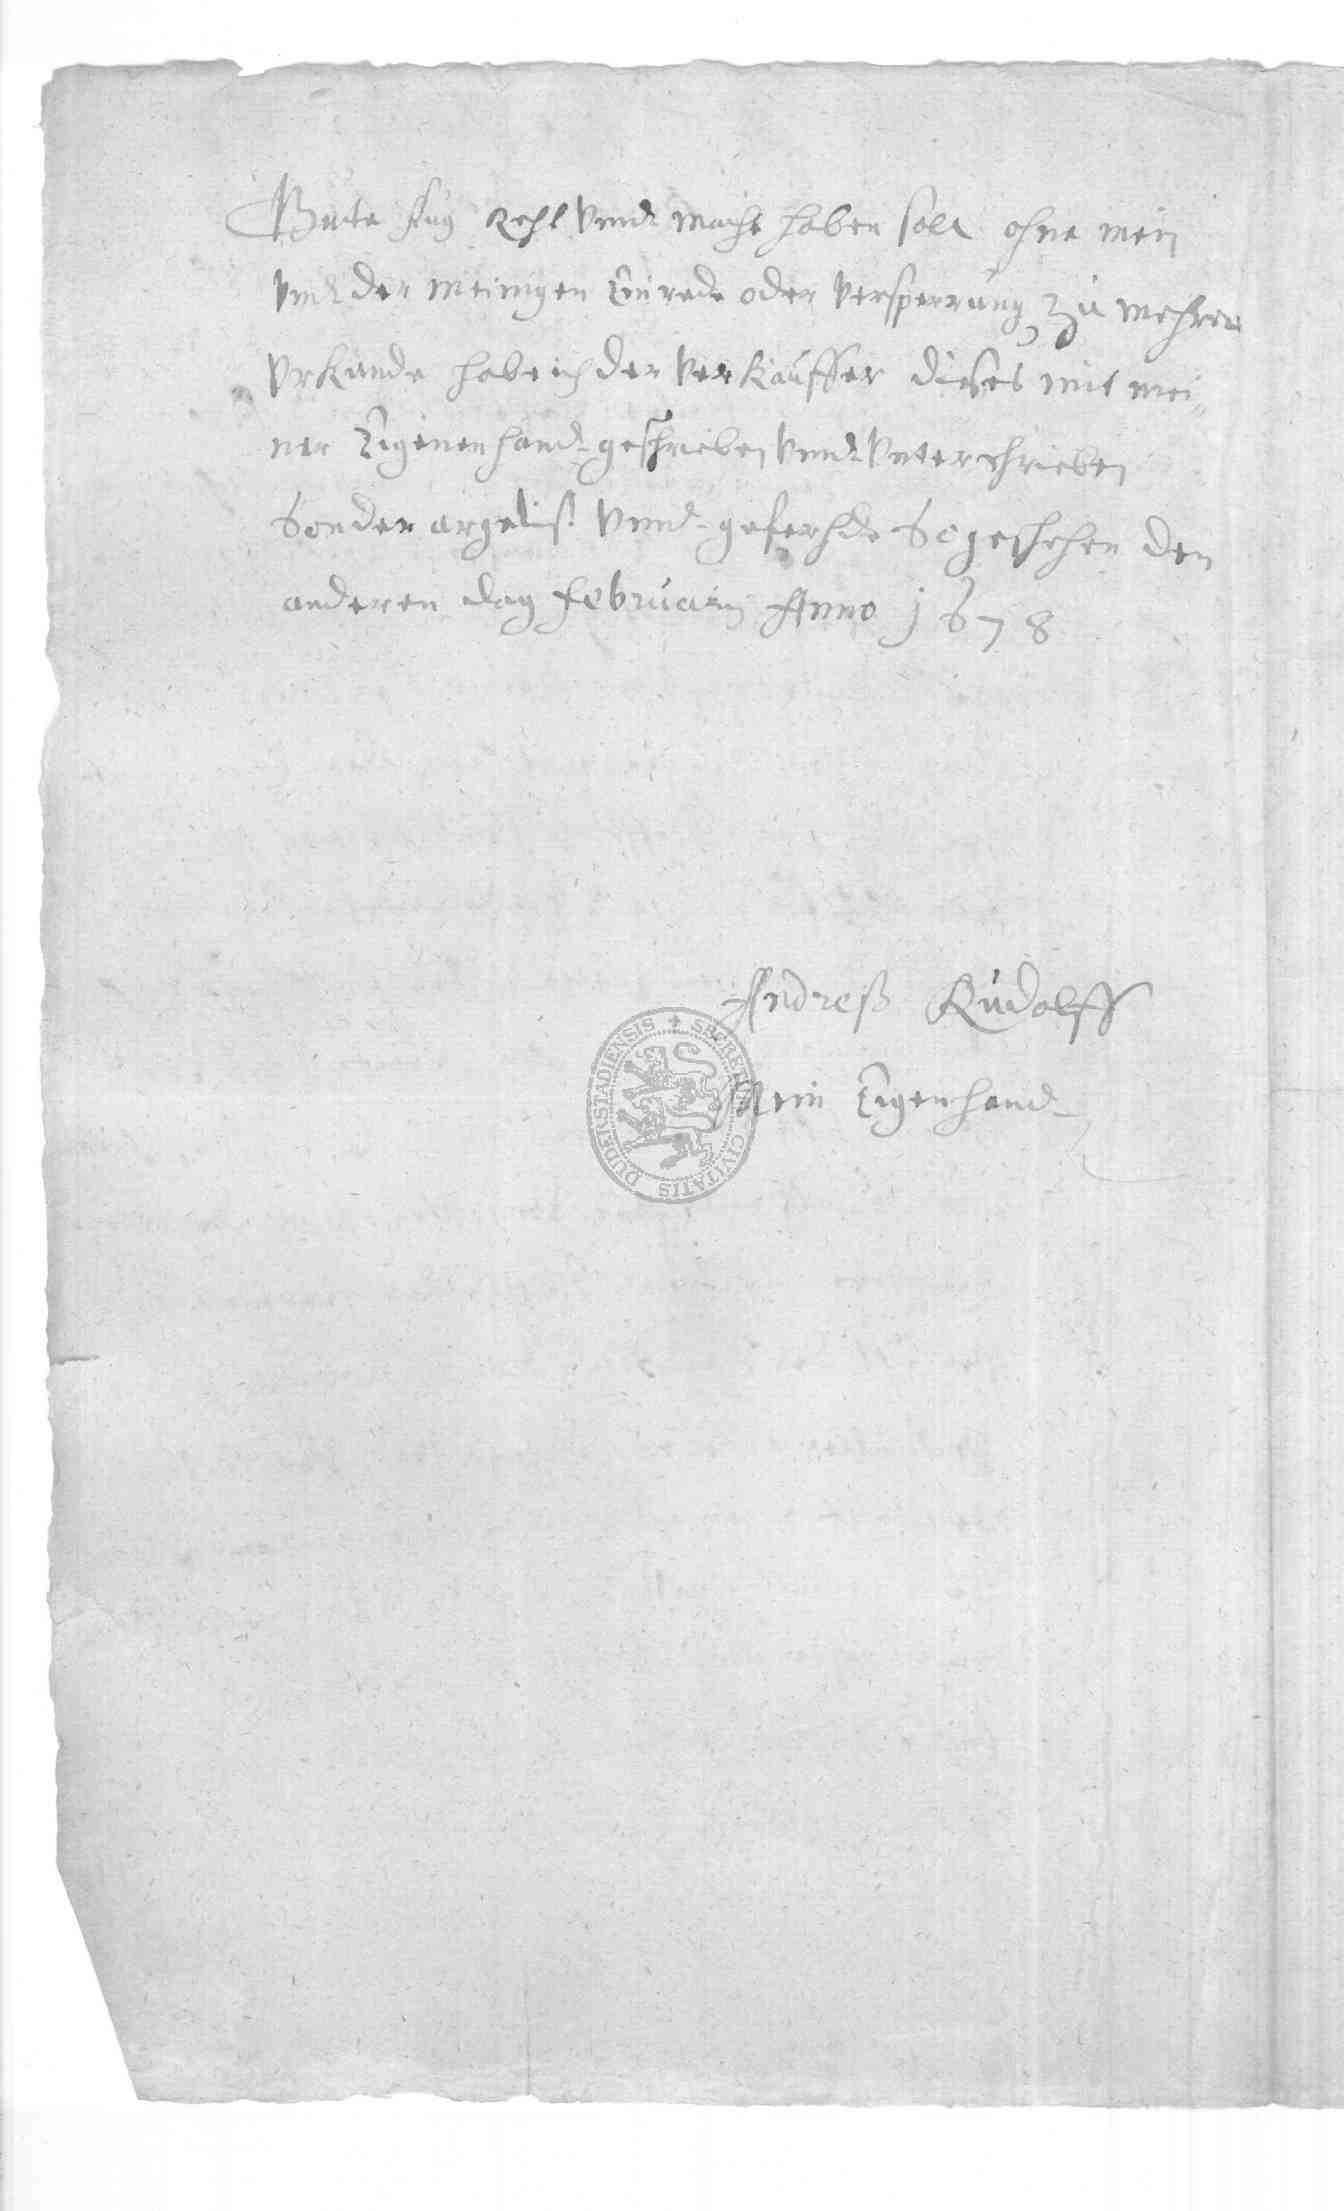 Gute fug Recht vnnd macht haben soll ohne mein
vnd der meinigen Einrede oder versperrung zu mehrer
vrkunde habe ich der verkauffer dieses mit mei„
ner Eigenen hand geschrieben vnnd vnterschrieben
Sonder argelist vnnd geferhde So geschehen den
anderen dag februarij Anno 1678
Andreß Rudolff
Mein Eigen hand
SECRETUM CIVITATIS DUDERSTADIENSIS